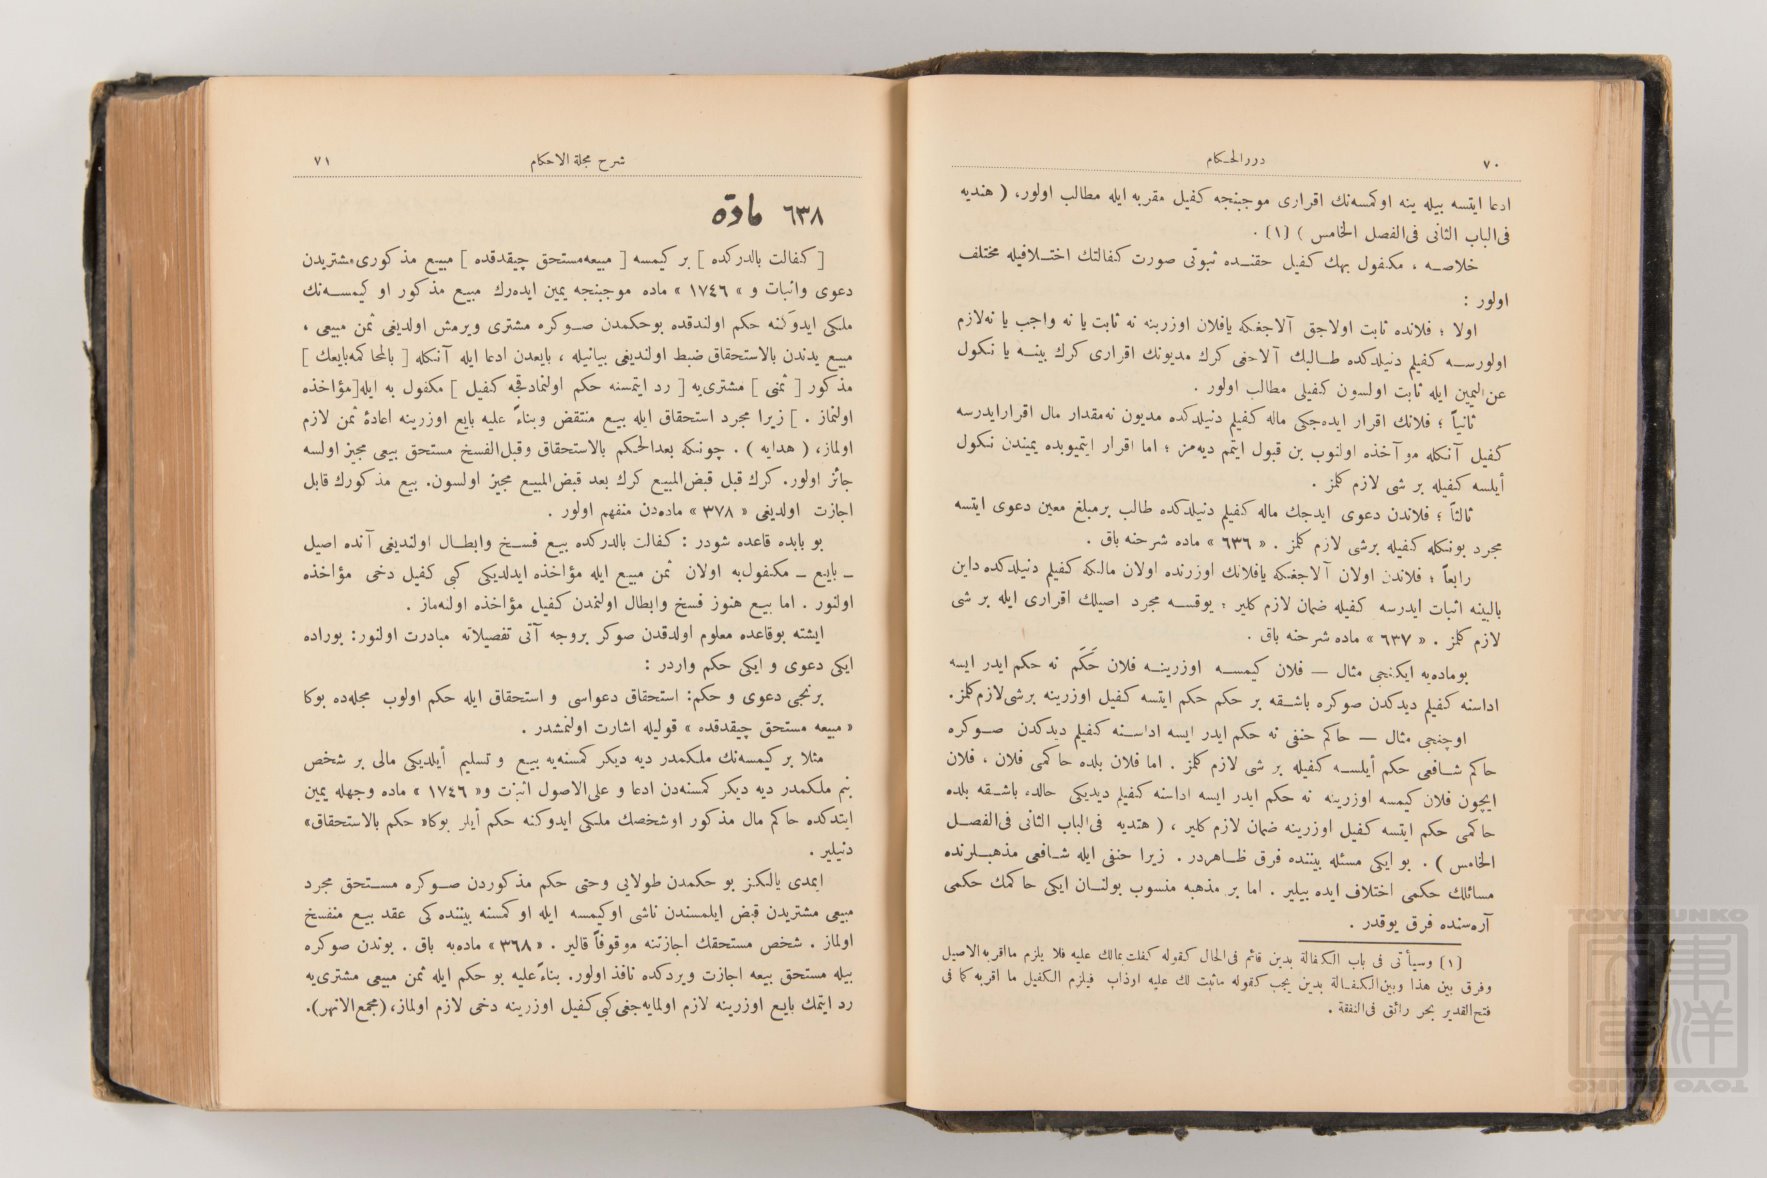 ٧٠
دررالحكام
ادعا ايتسه بيله ينه اوكمسه‌نك اقراری موجبنجه كفيل مقربه ايله مطالب اولور، ( هنديه
فی‌الباب الثانی فی‌الفصل الخامس ) [١] .
خلاصه ، مكفول بهك كفيل حقنده ثبوتی صورت كفالتك اختلافيله مختلف
اولور :
اولا ؛ فلانده ثابت اولاجق آلاجغكه يافلان اوزرينه نه ثابت يا نه واجب يا نه‌لازم
اولورسه كفيلم دنيلدكده طالبك آلاجغی كرك مديونك اقراری كرك بينه يا نكول
عن‌اليمين ايله ثابت اولسون كفيلی مطالب اولور .
ثانياً ؛ فلانك اقرار ايده‌جكی ماله كفيلم دنيلدكده مديون نه‌مقدار مال اقرارايدرسه
كفيل آنكله مؤآخذه اولنوب بن قبول ايتمم ديه‌مز ؛ اما اقرار ايتميوبده يميندن نكول
أيلسه كفيله بر شی لازم كلمز .
ثالثاً ؛ فلاندن دعوی ايدجك ماله كفيلم دنيلدكده طالب برمبلغ معين دعوی ايتسه
مجرد بونكله كفيله برشی لازم كلمز . « ٦٣٦ » ماده شرحنه باق .
رابعاً ؛ فلاندن اولان آلاجغكه يافلانك اوزرنده اولان مالكه كفيلم دنيلدكده داين
بالبينه اثبات ايدرسه كفيله ضمان لازم كلير ؛ يوقسه مجرد اصيلك اقراری ايله بر شی
لازم كلمز . « ٦٣٧ » ماده شرحنه باق .
بوماده‌يه ايكنجی مثال — فلان كيمسه اوزرينه فلان حَكَم نه حكم ايدر ايسه
اداسنه كفيلم ديدكدن صوكره باشقه بر حكم حكم ايتسه كفيل اوزرينه برشی‌لازم‌كلمز.
اوچنجی مثال — حاكم حنفی نه حكم ايدر ايسه اداسنه كفيلم ديدكدن صوكره
حاكم شافعی حكم أيلسه كفيله بر شی لازم كلمز . اما فلان بلده حاكمی فلان ، فلان
ايچون فلان كيمسه اوزرينه نه حكم ايدر ايسه اداسنه كفيلم ديديكی حالده باشقه بلده
حاكمی حكم ايتسه كفيل اوزرينه ضمان لازم كلير ، ( هنديه فی‌الباب الثانی فی‌الفصل
الخامس ) . بو ايكی مسئله بيننده فرق ظاهردر . زيرا حنفی ايله شافعی مذهبلرنده
مسائلك حكمی اختلاف ايده بيلير . اما بر مذهبه منسوب بولنان ايكی حاكمك حكمی
آره‌سنده فرق يوقدر .
[١] وسيأتی فی باب الكفالة بدين قائم فی‌الحال كقوله كفلت بمالك عليه فلا يلزم مااقربه‌الاصيل
وفرق بين هذا وبين‌الكفالة بدين يجب كقوله ماثبت لك عليه اوذاب فيلزم الكفيل ما اقربه كما فی
فتح‌القدير بحر رائق فی‌النفقة .
شرح مجلة الاحكام
٧١
٦٣٨ ماده
[ كفالت بالدركده ] بر كيمسه [ مبيعه‌مستحق چيقدقده ] مبيع مذكوری‌مشتريدن
دعوی واثبات و « ١٧٤٦ » ماده موجبنجه يمين ايده‌رك مبيع مذكور او كيمسه‌نك
ملكی ايدوكنه حكم اولندقده بوحكمدن صوكره مشتری ويرمش اولديغی ثمن مبيعی ،
مبيع يدندن بالاستحقاق ضبط اولنديغی بيانيله ، بايعدن ادعا ايله آنكله [ بالمحاكمه‌بايعك ]
مذكور [ ثمنی ] مشتری‌يه [ رد ايتمسنه حكم اولنمادقجه كفيل ] مكفول به ايله[مؤاخذه
اولنماز . ] زيرا مجرد استحقاق ايله بيع منتقض وبناءً عليه بايع اوزرينه اعادۀ ثمن لازم
اولماز، ( هدايه ) . چونكه بعدالحكم بالاستحقاق وقبل‌الفسخ مستحق بيعی مجيز اولسه
جائز اولور. كرك قبل قبض‌المبيع كرك بعد قبض‌المبيع مجيز اولسون. بيع مذكورك قابل
اجازت اولديغی « ٣٧٨ » ماده‌دن منفهم اولور .
بو بابده قاعده شودر : كفالت بالدركده بيع فسخ وابطال اولنديغی آنده اصيل
ـ بايع ـ مكفول‌به اولان ثمن مبيع ايله مؤاخذه ايدلديكی كبی كفيل دخی مؤاخذه
اولنور . اما بيع هنوز فسخ وابطال اولنمدن كفيل مؤاخذه اولنه‌ماز .
ايشته بوقاعده معلوم اولدقدن صوكر بروجه آتی تفصيلاته مبادرت اولنور: بوراده
ايكی دعوی و ايكی حكم واردر :
برنجی دعوی و حكم: استحقاق دعواسی و استحقاق ايله حكم اولوب مجله‌ده بوكا
« مبيعه مستحق چيقدقده » قوليله اشارت اولنمشدر .
مثلا بر كيمسه‌نك ملكمدر ديه ديكر كمسنه‌يه بيع و تسليم أيلديكی مالی بر شخص
بنم ملكمدر ديه ديكر كمسنه‌دن ادعا و علی‌الاصول اثبات و« ١٧٤٦ » ماده وجهله يمين
ايتدكده حاكم مال مذكور اوشخصك ملكی ايدوكنه حكم أيلر بوكا« حكم بالاستحقاق»
دنيلير .
ايمدی يالكز بو حكمدن طولايی وحتی حكم مذكوردن صوكره مستحق مجرد
مبيعی مشتريدن قبض ايلمسندن ناشی اوكيمسه ايله او كمسنه بيننده كی عقد بيع منفسخ
اولماز . شخص مستحقك اجازتنه موقوفاً قالير . « ٣٦٨ » ماده‌يه باق . بوندن صوكره
بيله مستحق بيعه اجازت ويردكده نافذ اولور. بناءً‌عليه بو حكم ايله ثمن مبيعی مشتری‌يه
رد ايتمك بايع اوزرينه لازم اولمايه‌جغی‌كبی‌كفيل اوزرينه دخی لازم اولماز، (مجمع‌الانهر).
TOYO BUNKO
東洋文庫
TOYO BUNKO